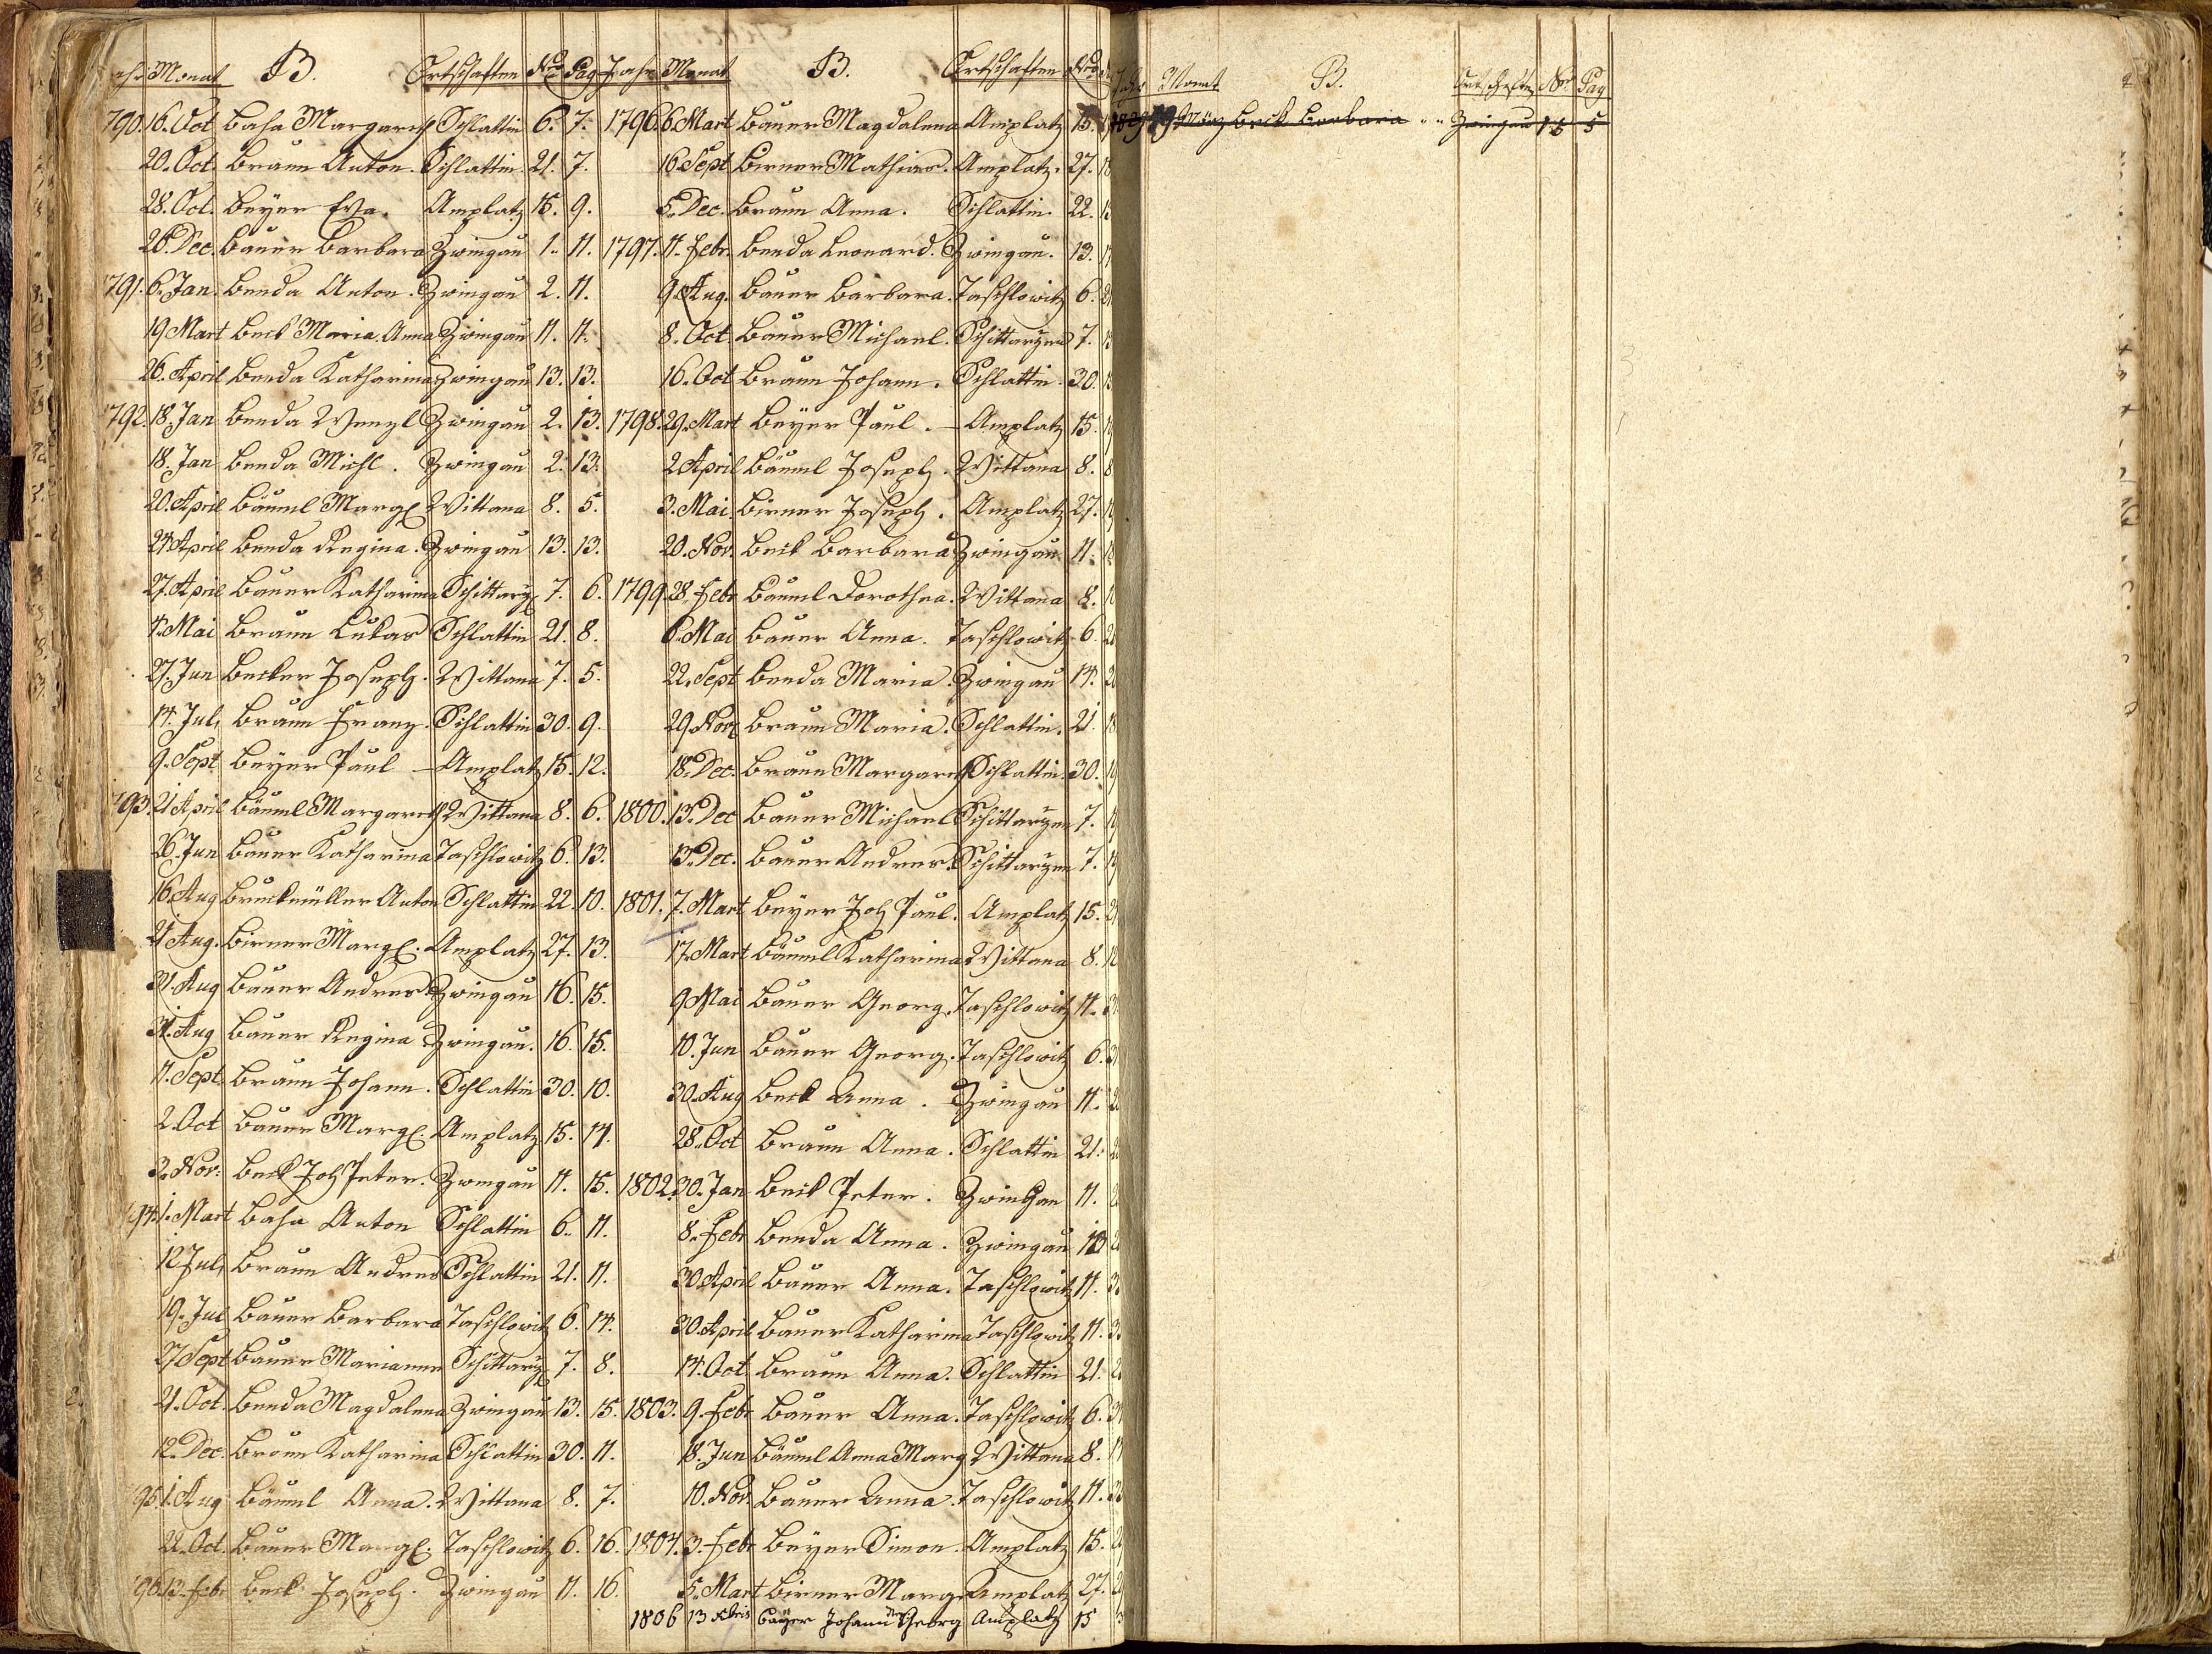 Monat B. Ortschaften Nro Pag
790. 16. Oct Basa Margareth Schlattin 6. 7.
20. Oct. Braun Anton. Schlattin. 21. 7.
28. Oct. Beyer Eva. Amplatz 15. 9.
26. Dec. Bauer Barbara Zwingau 1. 11.
791. 6. Jan. Benda Anton. Zwingau 2. 11.
19 Mart Beck Maria Anna Zwingau 11. 11.
26. April Benda Katharina Zwingau 13. 13.
792. 18. Jan Benda Wenzl Zwingau 2. 13.
18. Jan Benda Michl. Zwingau 2. 13.
20. April Bäuml Marg. Wittana 8. 5.
24 April Benda Regina. Zwingau 13. 13.
27. April Bauer Katharina Schittarz 7. 6.
4. Mai Braun Lukas Schlattin 21. 8.
27. Jun Becker Joseph. Wittana 7. 5.
14. Jul. Braun Franz. Schlattin 30. 9.
9. Sept Beyer Paul — Amplatz 15. 12.
793. 21 April Bäuml Margareth Wittana 8. 6.
26. Jun Bauer Katharina Taschlowitz 6. 13.
16. Aug Bruckmüller Anton Schlattin 22. 10.
21 Aug. Birner Marg. Amplatz 27. 13.
31. Aug Bauer Andreas Zwingau 16. 15.
31. Aug Bauer Regina Zwingau. 16. 15.
11. Sept. Braun Johann. Schlattin 30. 10.
2. Oct Bauer Marg. Amplatz 15. 14.
3. Nov: Beck Joh Peter. Zwingau 11. 15.
94. 1. Mart Basa Anton Schlattin 6. 11.
12 Jul. Braun Andreas Schlattin 21. 11.
19. Jul Bauer Barbara Taschlowitz 6. 14.
27 Sept Bauer Marianna Schittarz 7. 8.
21. Oct. Benda Magdalena Zwingau 13. 15.
12. Dec. Braun Katharina Schlattin 30. 11.
95. 1. Aug Bäuml Anna. Wittana 8. 7.
22. Oct. Bauer Marg. Taschlowitz 6. 16.
96. 13. Febr Beck Joseph. Zwingau 11. 16.
Jahr Monat B. Ortschaften Nro
1796. 6. Mart Bauer Magdalena Amplatz 15.
16. Sept Birner Mathias. Amplatz. 27.
5. Dec. Braun Anna. Schlattin. 22.
1797. 11. Febr. Benda Leonard. Zwingau. 13.
9. Aug. Bauer Barbara. Taschlowitz 6.
8. Oct. Bauer Michael. Schittarzen 7.
16. Oct Braun Johann. Schlattin. 30.
1798. 29. Mart Beyer Paul. — Amplatz 15.
2 April Bäuml Joseph. Wittana 8.
3. Mai. Birner Joseph. Amplatz 27.
20. Nov. Beck Barbara Zwingau. 11.
1799. 28. Febr Bäuml Dorothea. Wittana 8.
6. Mai Bauer Anna. Taschlowitz 6.
22. Sept Benda Maria. Zwingau 14.
29 Nov Braun Maria. Schlattin. 21.
18. Dec. Braun Margareth Schlattin. 30.
1800. 13. Dec Bauer Michael Schittarzen 7.
13. Dec. Bauer Andreas. Schittarzen 7.
1801. 7. Mart Beyer Joh Paul. Amplatz 15.
17. Mart Bäuml Katharina Wittana 8.
9. Mai Bauer Georg. Taschlowitz 11.
10. Jun Bauer Georg. Taschlowitz 6.
30. Aug Beck Anna. Zwingau 11.
28. Oct Braun Anna. Schlattin 21.
1802. 30. Jan Beck Peter. Zwingau 11.
8. Febr Benda Anna. Zwingau 13
30 April Bauer Anna. Taschlowitz 11.
30. April Bauer Katharina Taschlowitz 11.
14. Oct Braun Anna. Schlattin 21.
1803. 9. Febr Bauer Anna. Taschlowitz 6.
18. Jun Bäuml Anna Marg Wittana 8.
10. Nov. Bauer Anna. Taschlowitz 11.
1804. 3. Febr Beyer Simon. Amplatz 15.
5. Mart Birner Marg. Amplatz 27.
1806 13 Xbris Bayer Johann Georg Amplatz 15
Jahr Monat B. Ortschaften Nro. Pag
1829 19 März Beck Barbara " " Zwingau 15 5